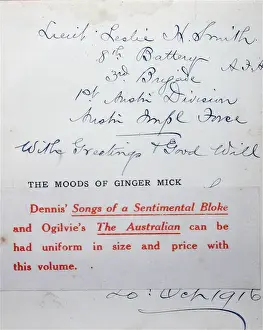 Lieut Leslie H. Smith
8th Battery
3rd Brigade A.F.A
1st Austn Division
Austn Impl Force
With Greetings & Good Will
THE MOODS OF GINGER MICK
Dennis' Songs of a Sentimental Bloke
and Ogilvie's The Australian can be
had uniform in size and price with
this volume.
20: Oct 1916